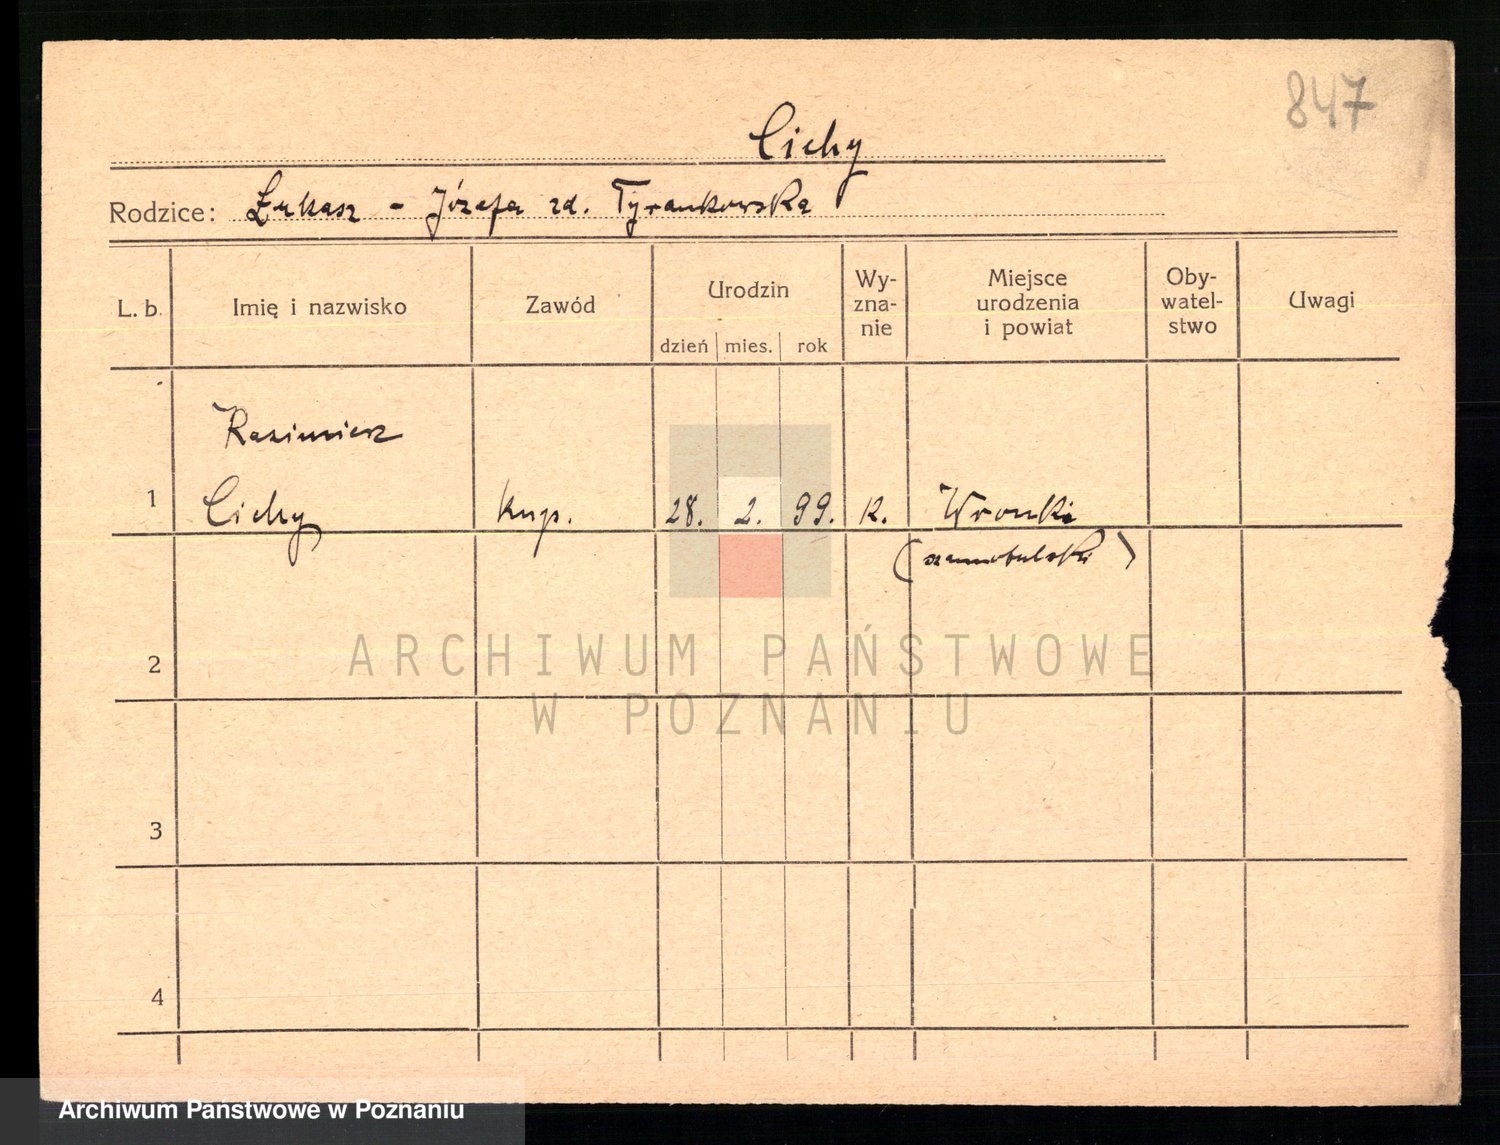 847
Cichy
Rodzice: Łukasz - Józefa zd. Tyrankowska
L. b. Imię i nazwisko Zawód Urodzin Wy-zna-nie Miejsce urodzenia i powiat Oby-watel-stwo Uwagi
dzień mies. rok
Kazimierz
1 Cichy kup. 28. 2. 99. k. Wronki
(szamotulski)
2
ARCHIWUM PAŃSTWOWE
W POZNANIU
3
4
Archiwum Państwowe w Poznaniu